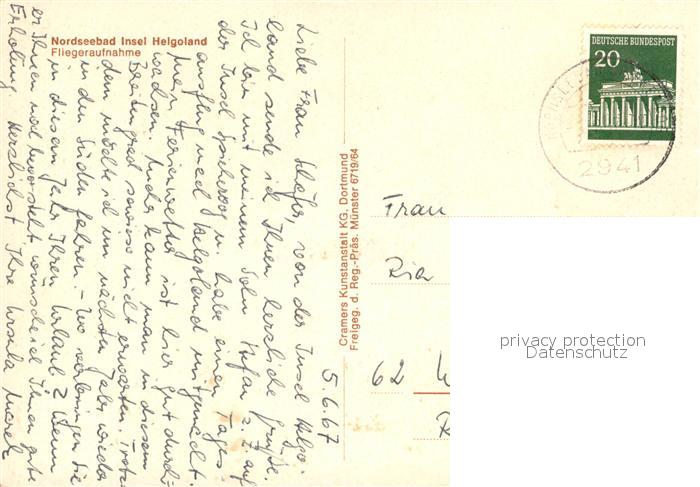 Nordseebad Insel Helgoland
Fliegeraufnahme
5.6.67
Liebe Frau Schäfer, von der Insel Helgo-
land sende ich Ihnen herzliche Grüße.
Ich bin mit meinem Sohn Stefan z. Z. auf
der Insel Spiekeroog u. habe einen Tages-
ausflug nach Helgoland mitgemacht.
Mein Ferienwetter ist hier gut durch-
wachsen. Mehr kann man in diesem
Breitengrad sowieso nicht erwarten. Trotz-
dem möchte ich im nächsten Jahr wieder
in den Süden fahren. - Wo verbringen Sie
in diesem Jahr Ihren Urlaub? Wenn
er Ihnen noch bevorsteht wünsche ich Ihnen gute
Erholung. Herzlichst Ihre Ursula
Cramers Kunstanstalt KG, Dortmund
Freigeg. d. Reg.-Präs. Münster 6719/64
DEUTSCHE BUNDESPOST
20
2941
Frau
Ria
62
privacy protection
Datenschutz